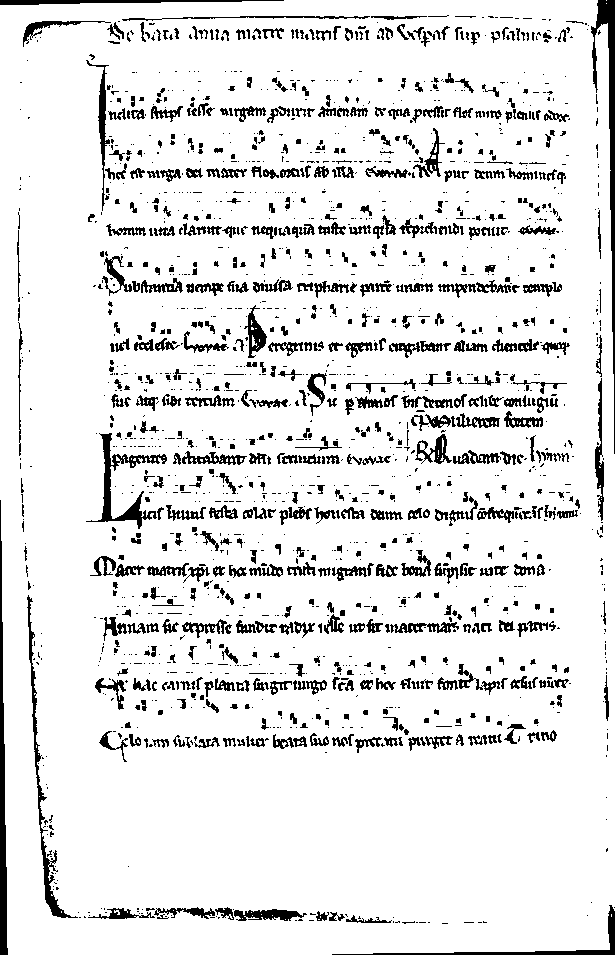 De bata anna matre matris dni ad vespas sup psalmos a.
nclita stirps iesse virgam produxit amenam de qua processit flos miro plenus odore
hec est virga dei mater flos ortus ab illa evovae A put deum hominesq
homin vita claruit que nequaquam iuste reprehendi potuit evovae
Substantia nempe sua divisa tripharie partem unam impendebant templo
vel ecclesie Evovae a Peregrinis et egenis erogabant aliam clientele quoq
sue atq sibi terciam Evovae a Sic p annos bis decenos celibe coniugiu
Mulierem fortem
pagentes actitabant dni servitium evovae R Quadam die hymn
Lucis huius festa colat plebs honesta deum celo dignis hymnis
Mater matris xpi et hec mudo tristi migrans fide bona supsit vite dona
Annam sic expresse fundit radix iesse ut sit mater matris nati dei patris
Ex hac carnis planta surgit virgo sca et hec fluit fonte lapis cesus
Celo iam sublata mulier beata suo nos precatu purget a reatu Trino